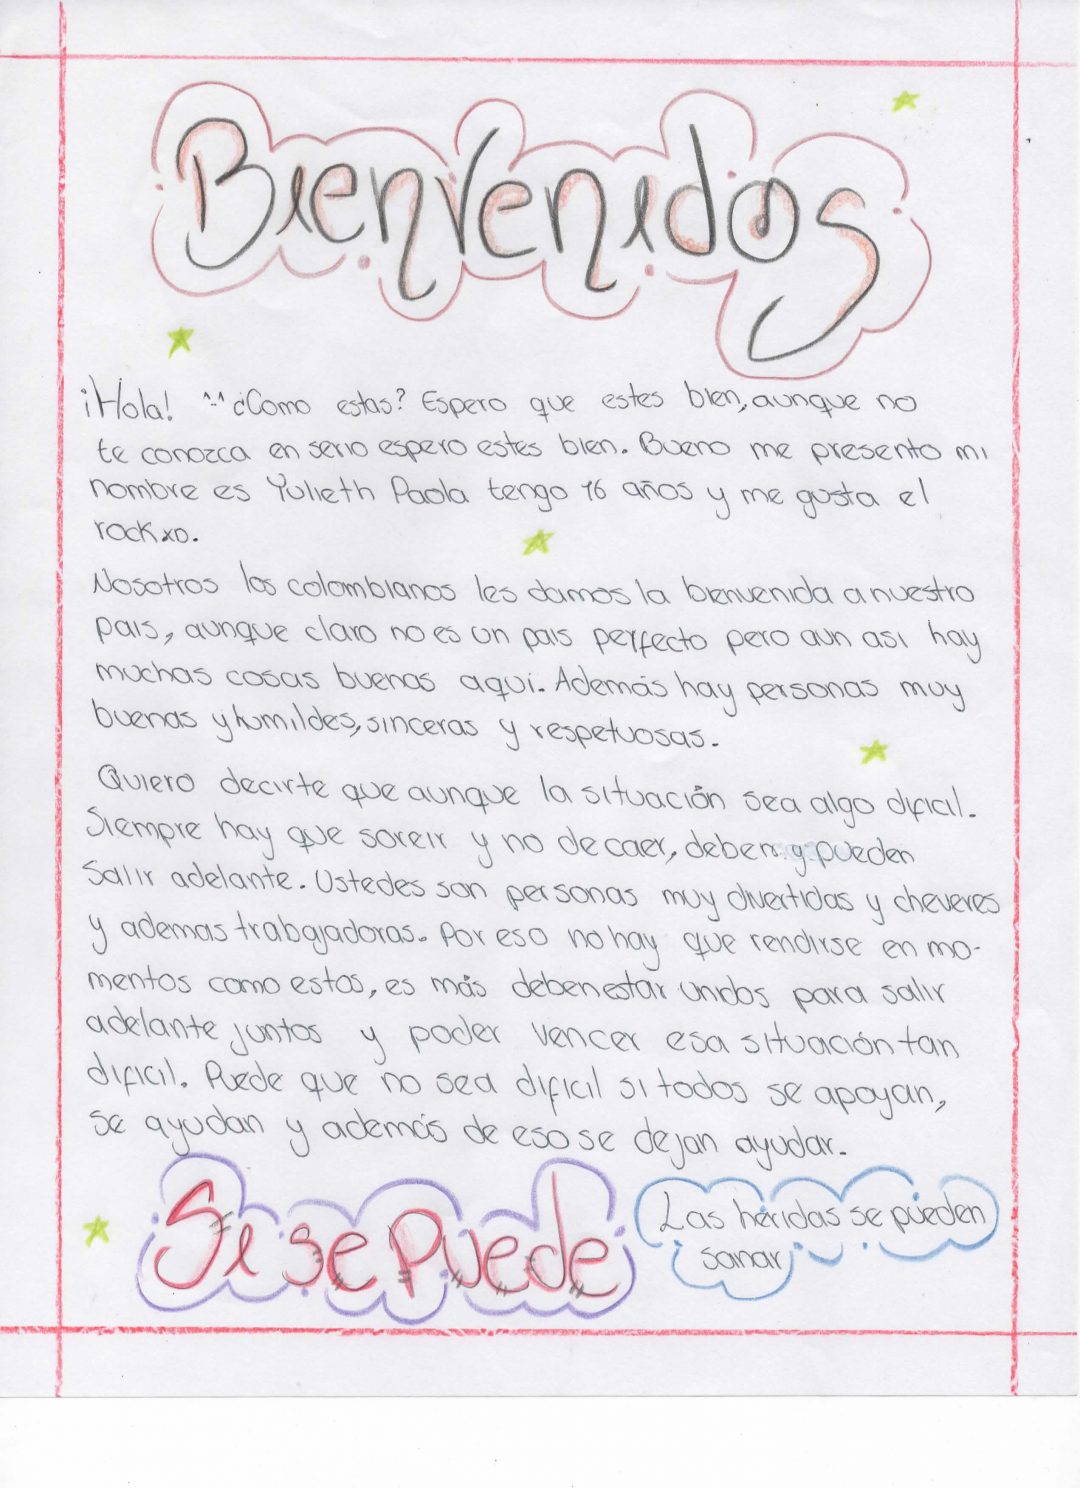 Bienvenidos
¡Hola! ¿Como estas? Espero que estes bien, aunque no
te conozca en serio espero estes bien. Bueno me presento mi
nombre es Yulieth Paola tengo 16 años y me gusta el
rock xD.
Nosotros los colombianos les damos la bienvenida a nuestro
pais, aunque claro no es un pais perfecto pero aun asi hay
muchas cosas buenas aquí. Además hay personas muy
buenas y humildes, sinceras y respetuosas.
Quiero decirte que aunque la situación sea algo dificil.
Siempre hay que soreir y no decaer, deben y pueden
Salir adelante. Ustedes son personas muy divertidas y cheveres
y ademas trabajadoras. Por eso no hay que rendirse en mo-
mentos como estos, es más deben estar unidos para salir
adelante juntos y poder vencer esa situación tan
dificil. Puede que no sea dificil si todos se apoyan,
se ayudan y además de eso se dejan ayudar.
Si se Puede
Las heridas se pueden
sanar